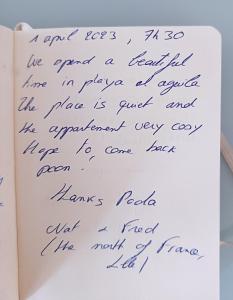 1 april 2023, 7h30
We spend a beautiful
time in playa el aguila
The place is quiet and
the appartement very cosy
Hope to, come back
soon.
Thanks Paola
Nat & Fred
(the north of France,
Lille)